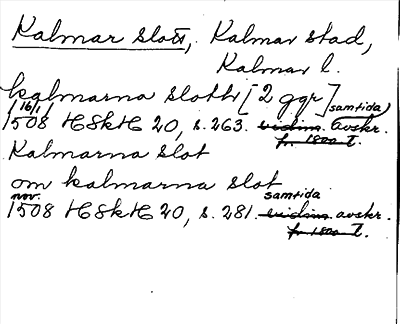 Kalmar slott, Kalmar stad,
Kalmar l.
kalmarna sloth [2 ggr]
16/1 1508 HSkH 20, s. 263. vidim. samtida avskr.
fr. 1800-t.
Kalmarna slot
om kalmarna slot
nov. 1508 HSkH 20, s. 281. vidim. samtida avskr.
fr. 1800-t.